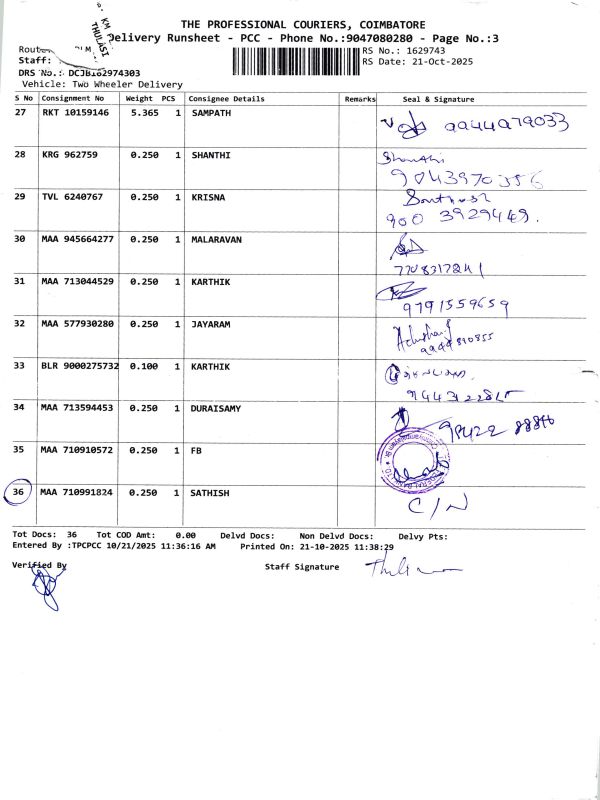 THE PROFESSIONAL COURIERS, COIMBATORE
Delivery Runsheet - PCC - Phone No.:9047080280 - Page No.:3
KM PL
THULASI
RS No.: 1629743
Staff:
RS Date: 21-Oct-2025
DRS No.: DCJB162974303
Vehicle: Two Wheeler Delivery
S No Consignment No Weight PCS Consignee Details Remarks Seal & Signature
27 RKT 10159146 5.365 1 SAMPATH 9944979033
28 KRG 962759 0.250 1 SHANTHI Shanthi
9043970356
29 TVL 6240767 0.250 1 KRISNA Santhosh
900 3929449.
30 MAA 945664277 0.250 1 MALARAVAN
7708317241
31 MAA 713044529 0.250 1 KARTHIK
9791559659
32 MAA 577930280 0.250 1 JAYARAM
33 BLR 9000275732 0.100 1 KARTHIK
34 MAA 713594453 0.250 1 DURAISAMY
35 MAA 710910572 0.250 1 FB
36 MAA 710991824 0.250 1 SATHISH C/N
Tot Docs: 36 Tot COD Amt: 0.00 Delvd Docs: Non Delvd Docs: Delvy Pts:
Entered By :TPCPCC 10/21/2025 11:36:16 AM Printed On: 21-10-2025 11:38:29
Verified By Staff Signature